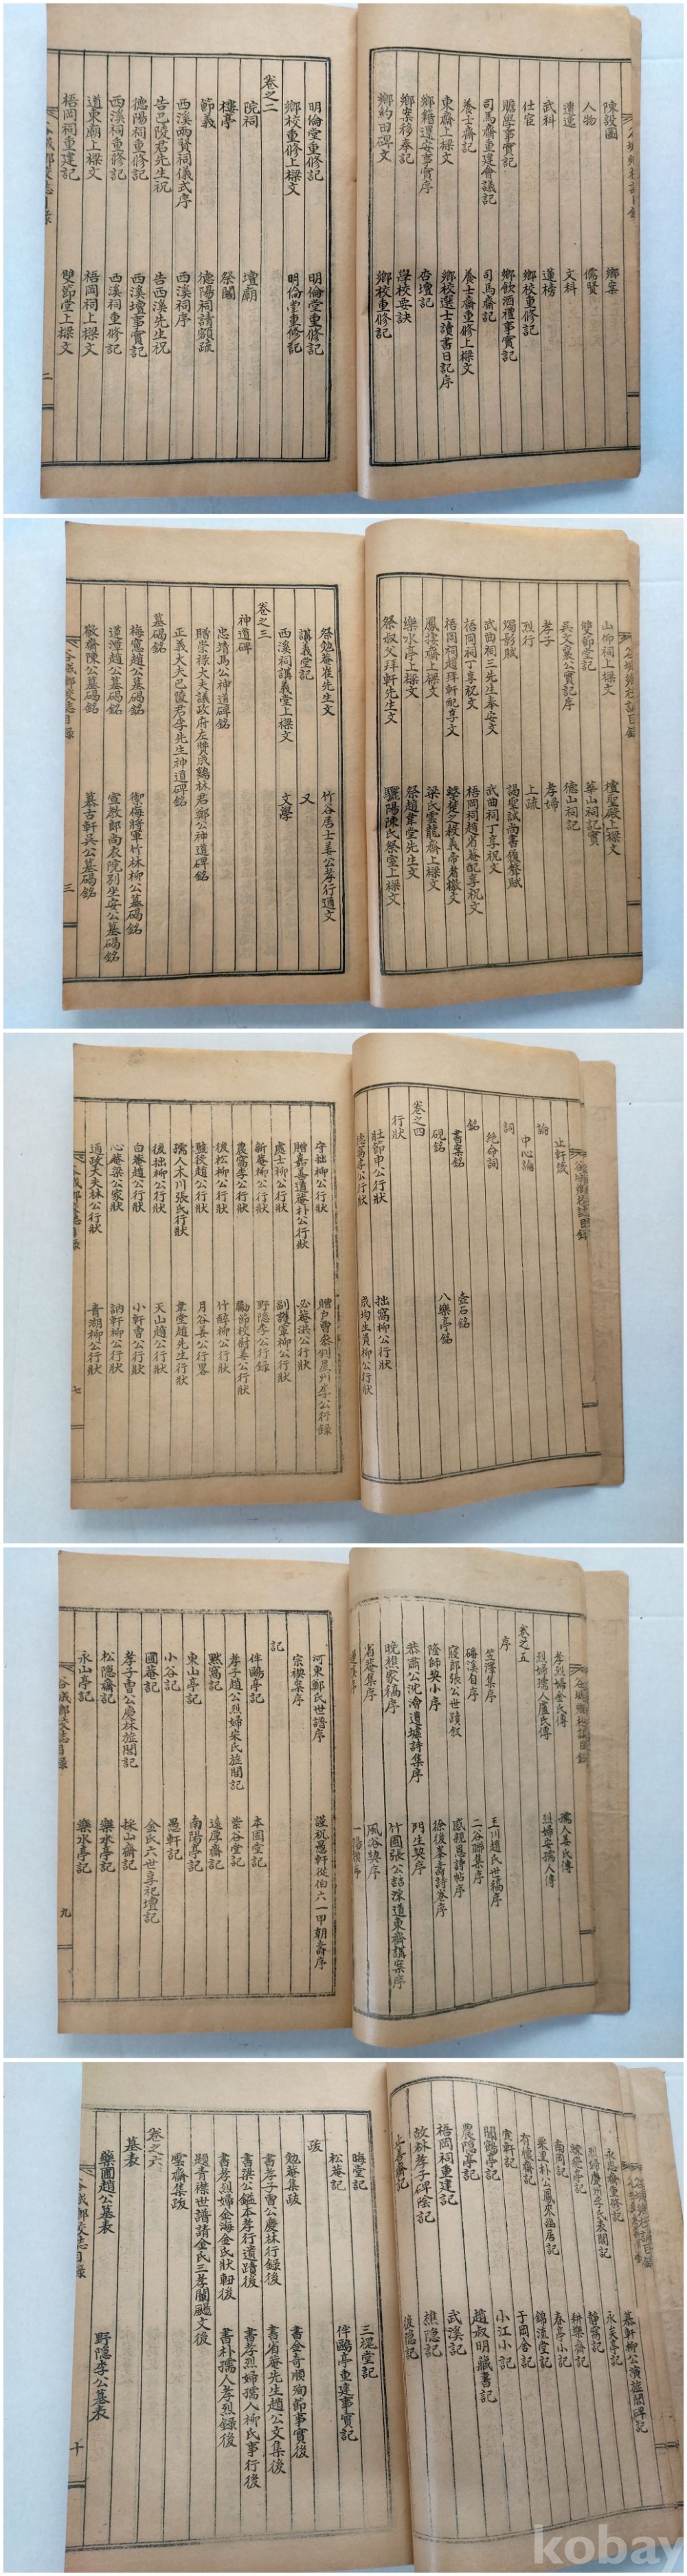 陳設圖 鄉案
人物 儒賢
遭逢 文科
武科 蓮榜
仕宦 鄉校重修記
贍學事實記 鄉飲酒禮事實記
司馬齋重建會議記 司馬齋記
養士齋記 養士齋重修上樑文
東齋上樑文 鄉校選士讀書日記序
鄉籍還安事實序 杏壇記
鄉案移奉記 學校要訣
鄉約田碑文 鄉校重修記
明倫堂重修記 明倫堂重修記
鄉校重修上樑文 明倫堂重修記
卷之二
院祠 壇廟
樓亭 祭閣
節義 德陽祠請額疏
西溪兩賢祠儀式序 西溪祠序
告巴陵君先生祝 告西溪先生祝
德陽祠重修記 西溪壇事實記
西溪祠重修記 西溪祠重修記
道東廟上樑文 梧岡祠上樑文
梧岡祠重建記 雙節堂上樑文
谷城鄉校誌目錄 二
山仰祠上樑文 壇聖殿上樑文
雙節堂記 華山祠記實
吳文襄公實記序 德山祠記
孝子 孝婦
烈行 上疏
燭影賦 謁聖誠尚書履聲賦
武曲祠三先生奉安文 武曲祠丁享祝文
梧岡祠丁享祝文 梧岡祠趙省菴配享祝文
梧岡祠趙拜軒配享文
鳳捿齋上樑文 梁氏雲龍齋上樑文
樂水亭上樑文 祭趙韋堂先生文
祭叔父拜軒先生文 驪陽陳氏祭室上樑文
祭勉菴崔先生文 竹谷居士姜公孝行通文
講義堂記 又
西溪祠講義堂上樑文 文學
卷之三
神道碑
忠靖馬公神道碑銘
贈崇祿大夫議政府左贊成鷄林君鄭公神道碑銘
正義大夫巴陵君李先生神道碑銘
墓碣銘
梅窓趙公墓碣銘 禦侮將軍竹林柳公墓碣銘
蓮潭趙公墓碣銘 宣敎郞尚衣院別坐安公墓碣銘
敬齋陳公墓碣銘 慕古軒吳公墓碣銘
谷城鄉校誌目錄 三
止軒箴
論
中心論
詞
絶命詞
銘
書案銘 壺石銘
硯銘 八樂亭銘
卷之四
行狀
壯節申公行狀 拙窩柳公行狀
成均生員柳公行狀
守拙柳公行狀 贈戶曹參判星州李公行錄
贈嘉善道菴朴公行狀 必菴洪公行狀
處士柳公行狀 副護軍柳公行狀
新菴柳公行狀 野隱李公行錄
農窩李公行狀 勵節校尉姜公行狀
後松柳公行狀 竹醉柳公行狀
監役趙公行狀 月谷姜公行畧
孺人木川張氏行狀 韋堂趙先生行狀
後拙柳公行狀 天山趙公行狀
白菴趙公行狀 小軒曺公行狀
心菴梁公家狀 訥軒柳公行狀
通政大夫林公行狀 靑湖柳公行狀
谷城鄉校誌目錄 七
孝烈婦金氏傳 孺人姜氏傳
烈婦孺人盧氏傳 烈婦安孺人傳
卷之五
序
笠澤集序 玉川趙氏世稿序
磻溪自序 二谷聯集序
寢郎張公世蹟叙 感親恩詩帖序
隆師契小序 徐後峯壽詩卷序
恭肅公沈澮遺墟詩集序 門生契序
晚樵家稿序 竹圃張公喆洙道東齋講案序
省菴集序 風浴契序
河東鄭氏世譜序 謹祝愚軒從伯六一甲朝壽序
宗稧案序
記
伴鷗亭記 本園堂記
孝子趙公烈婦朱氏旌閭記 紫谷堂記
默窩記 追厚齋記
東山亭記 南陽亭記
小谷記 愚軒記
圃菴記 金氏六世享祀壇記
孝子曺公慶林旌閭記 採山齋記
松隱齋記 樂水亭記
永山亭記 樂水亭記
谷城鄉校誌目錄 九
永慕齋重修記 慕軒柳公演旌閭碑記
烈婦慶州李氏表閭記 永矣亭記
靜窩記
南岡記 耕樂齋記
栗里朴公鳳來幽居記 春亭小記
有槐齋記 錦流堂記
宜軒記 于岡舍記
聞鶴亭記 小江小記
農隱亭記 趙叔明藏書記
梧岡祠重建記 武溪記
故林孝子碑陰記 樵隱記
俊隱記
晦堂記 三樅堂記
松菴記 伴鷗亭重建事實記
跋
勉菴集跋 書金奇順殉節事實後
書孝子曺公慶林行錄後 書省菴先生趙公文集後
書梁公鎰本孝行遺蹟後 書孝烈婦孺人柳氏事行後
書孝烈婦金海金氏狀軸後 書朴孺人孝烈錄後
題靑襟世譜請金氏三孝闡颺文後
雲齋集跋
卷之六
墓表
藥圃趙公墓表 野隱李公墓表
谷城鄉校誌目錄 十
kobay